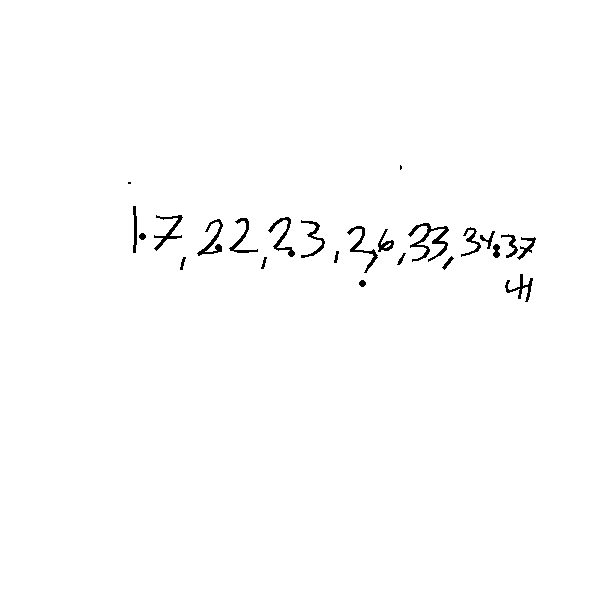 1.7, 2.2, 2.3, 2,6, 33, 34.37
41